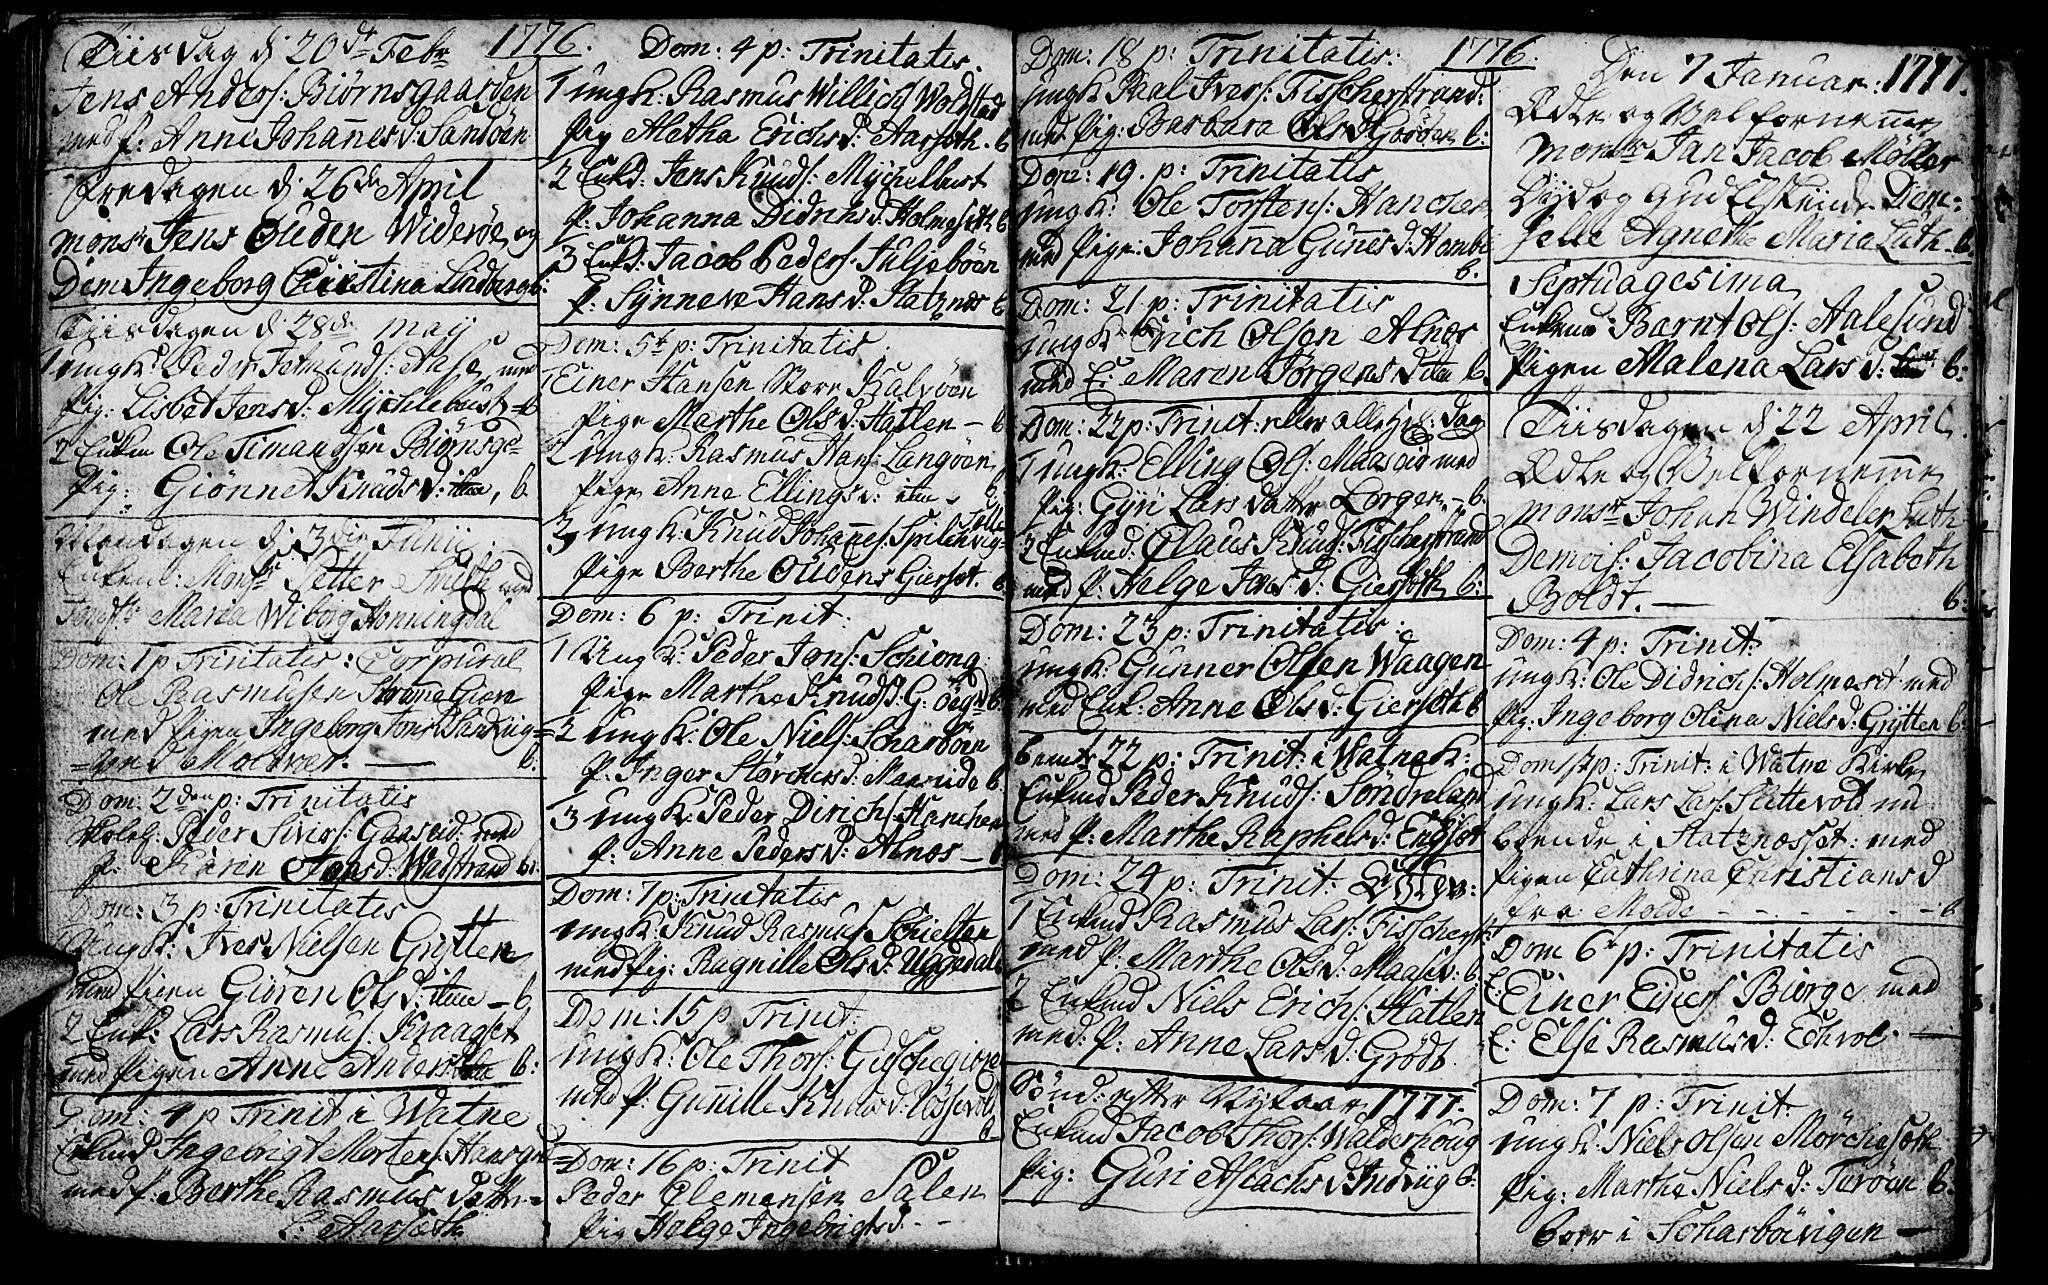 1776.
Tiisdag d: 20de Febr
Jens Anders: Biørnsgaarden
med p: Anne Johannes d: Sandøen
Fredagen d: 26de April
Monsr Jens Ouden Widerøe og
Dem Ingeborg Christina Lindberg b:
Tiisdagen d: 28de May
1 ungk: Peder Jetmunds: Aase med
Pig: Lisbet Jens d: Mychlebust b
2 Enkm Ole Timandsen Biørnsg
Pig: Giønnet Knuds d: item, b.
Mandagen d: 3die Junii
Enkem: Monsr Petter Smith med
Maria Wiborg Honningdal
Dom: 1 p Trinitatis: Corpural
Ole Rasmusen
med pigen Ingeborg Jons d
Molvær. b.
Dom: 2den p: Trinitatis
Peder Sivers: Gaaseid med
p: Karen Jans d: Wadstrand b:
Dom: 3 p: Trinitatis
Ungk: Iver Nielsen Grytten
med pigen Giøren Ols d: item b
2 Enk: Lars Rasmus: Kraagset
med Pigen Anne Anders b:
Dom: 4 p Trinit i Watne
Enkmd Ingebrigt Mortens:
med p: Berthe Rasmus
Aarsæth
Dom: 4 p: Trinitatis.
1 ungk: Rasmus Willich Woldstad
Pig Aletha Erichs d: Aarseth. b
2 Enkd: Jens Knuds: Mychelbust
p: Johanna Didrichs d: Holmeseth b
3 Enkd: Jacob Peders: Sulsebøen
p: Synneve Hans d: Slatznes b
Dom: 5te p: Trinitatis.
1 Einer Hansen Store Kalvøen
Pige Marthe Ols d: Hatlen b
2 ungk: Rasmus Hans: Langøen
Pige Anne Ellings d: item b
3 ungk: Knud Johannes: Spilcevig
Pige Berthe Oudens Gierset. b
Dom: 6 p: Trinit:
1 Ungk: Peder Jons: Schiong
Pige Marthe Knuds d: b
2 ungk: Ole Niels: Scharbøen
p: Inger Størchers d: b
3 ungk: Peder Dirichs: Hanchen
p: Anne Peders d: Alnes b
Dom: 7 p: Trinitatis
ungk: Knud Rasmus: Schielten
med pig: Ragnille Ols d: Uggedal b
Dom: 15 p Trinit:
ungk: Ole Thors: Gischegiore
med p: Gunille Knuds d:
b
Dom: 16 p: Trinit
Peder Clemensen Salen
Pig Helge Ingebrigts d:
1776.
Dom: 18 p: Trinitatis:
ungk Paal Ivers: Fischerstrand:
med pig: Barbara Ols d Godøen b:
Dom: 19. p: Trinitatis
ungk: Ole Torstens: Hanchen
med pige: Johanna Gunnes d:
b.
Dom: 21 p: Trinitatis
ungk Erich Olsen Alnæs
med E: Maren Jørgens d item b.
Dom: 22 p: Trinit: eller alle Hel: Dag
1 ungk: Elling Ols: Maaseid med
Pig: Gyri Lars datter Lorgen b.
2 Enkmd: Claus Knuds: Fischerstrand
med p: Helge Ives d: Gierseth b:
Dom: 23 p: Trinitatis:
ungk: Gunner Olsen Waagen
med Enk: Anne Ols d: Gierseth b
22 p: Trinit: i Watne k:
Enkmd Peder Knuds: Søndreland
med p: Marthe Raphels d: Engset
Dom: 24 p: Trinit:
1 Enkmd Rasmus Lars: Fischerst
med p: Marthe Ols d: Maaseid: b
2 Enkmd Niels Erichs: Hatlen
med: p: Anne Lars d: Grødt b.
Sønd: efter Nytaar 1777.
Enkmd Jacob Thors: Walderhoug
Pig: Guri Aslachs d: b:
1777.
Den 7 Januar.
Ædle og Velfornemme
Monsr Jan Jacob Møller
Dyd og Gud Elskende Dem=
iselle Agnethe Maria Luth b.
Septuagesima
Enkem: Barnt Ols: Aalesund
Pigen Malena Lars d: b:
Tiisdagen d: 22 April
Ædle og Velfornemme
Monsr Johan Windeler Luth
Demois: Jacobina Elsabeth
Boldt. b:
Dom: 4 p: Trinit:
ungk: Ole Didrichs: Holmeset med
pig: Ingeborg Olina Niels d: Grytten b:
Dom p: Trinit: i Watne Kirke
ungk: Lars Lars: Slettevold nu
boende i Slatznesset: med
Pigen Cathrina Christians d
fra Molde b
Dom 6te p: Trinitatis
E: Einer Einers: Biørge med
E: Else Rasmus d: Echvol
Dom: 7 p: Trinit:
ungk: Niels Olsen Mørcheseth
Pig: Marthe Niels d: Terøen b:
boer i Scharbøevigen